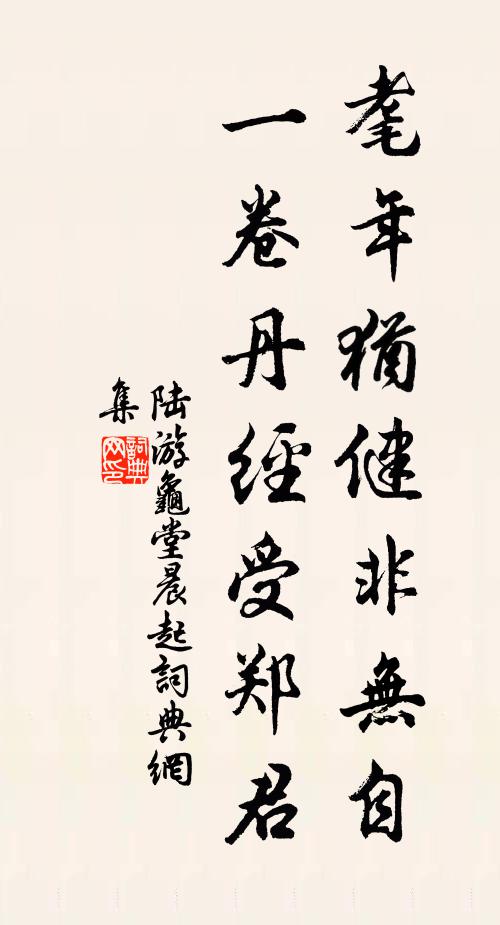 耄年猶健非無自
一卷丹經受郑君
陆游龜堂晨起詞典網
集
詞典
网印